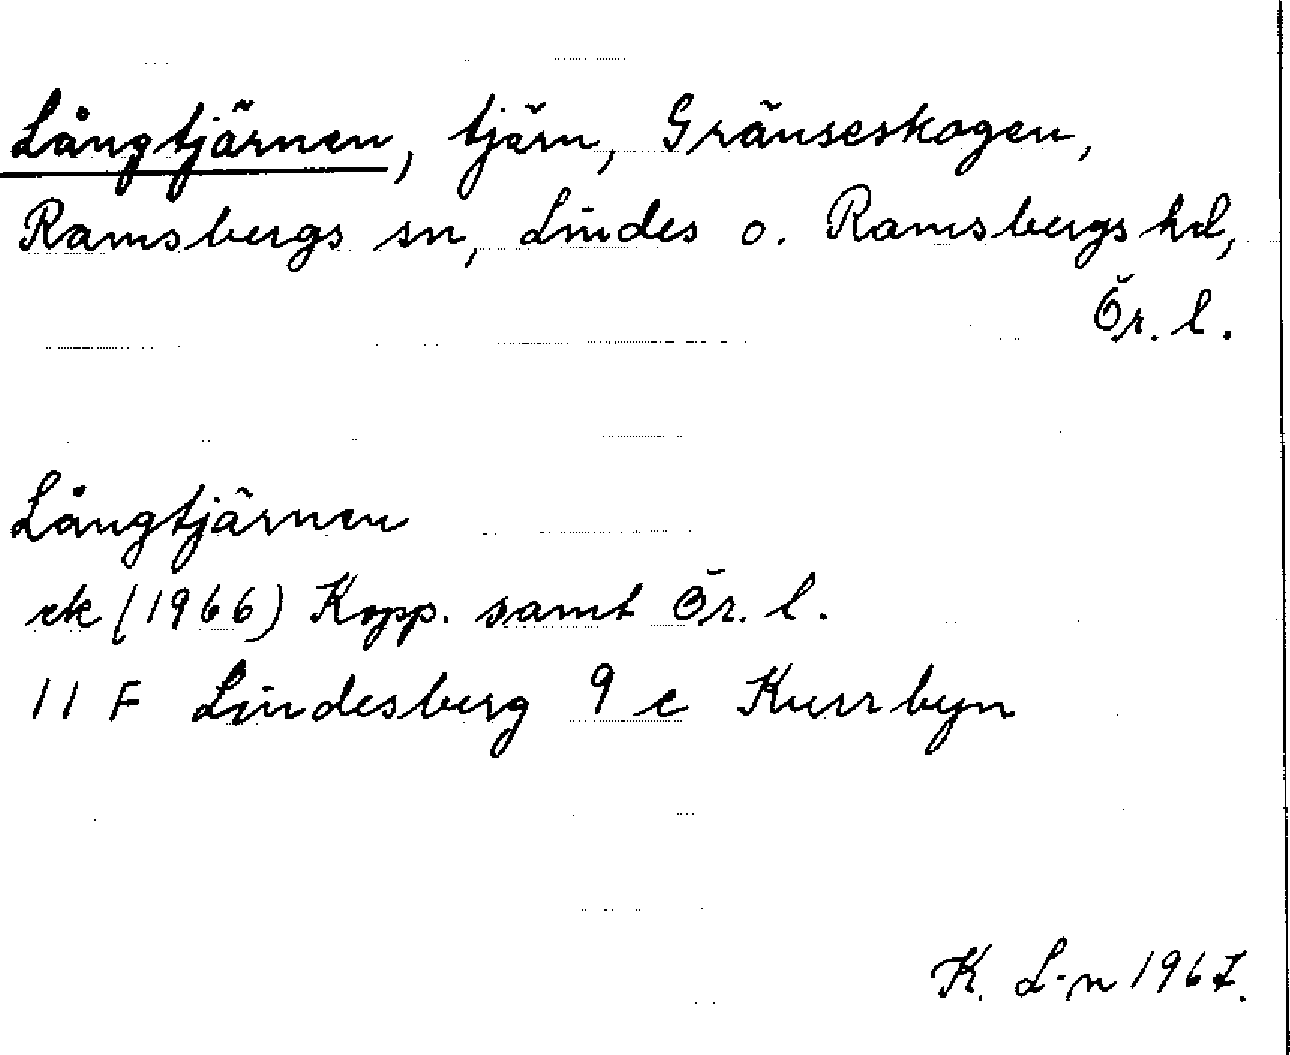 Långtjärnen, tjärn, Gränseskogen,
Ramsbergs sn, Lindes o. Ramsbergs hd,
Ör. l.
Långtjärnen
ek (1966) Kopp. samt Ör. l.
11 F Lindesberg 9 e Kurrbyn
K. L-n 1967.